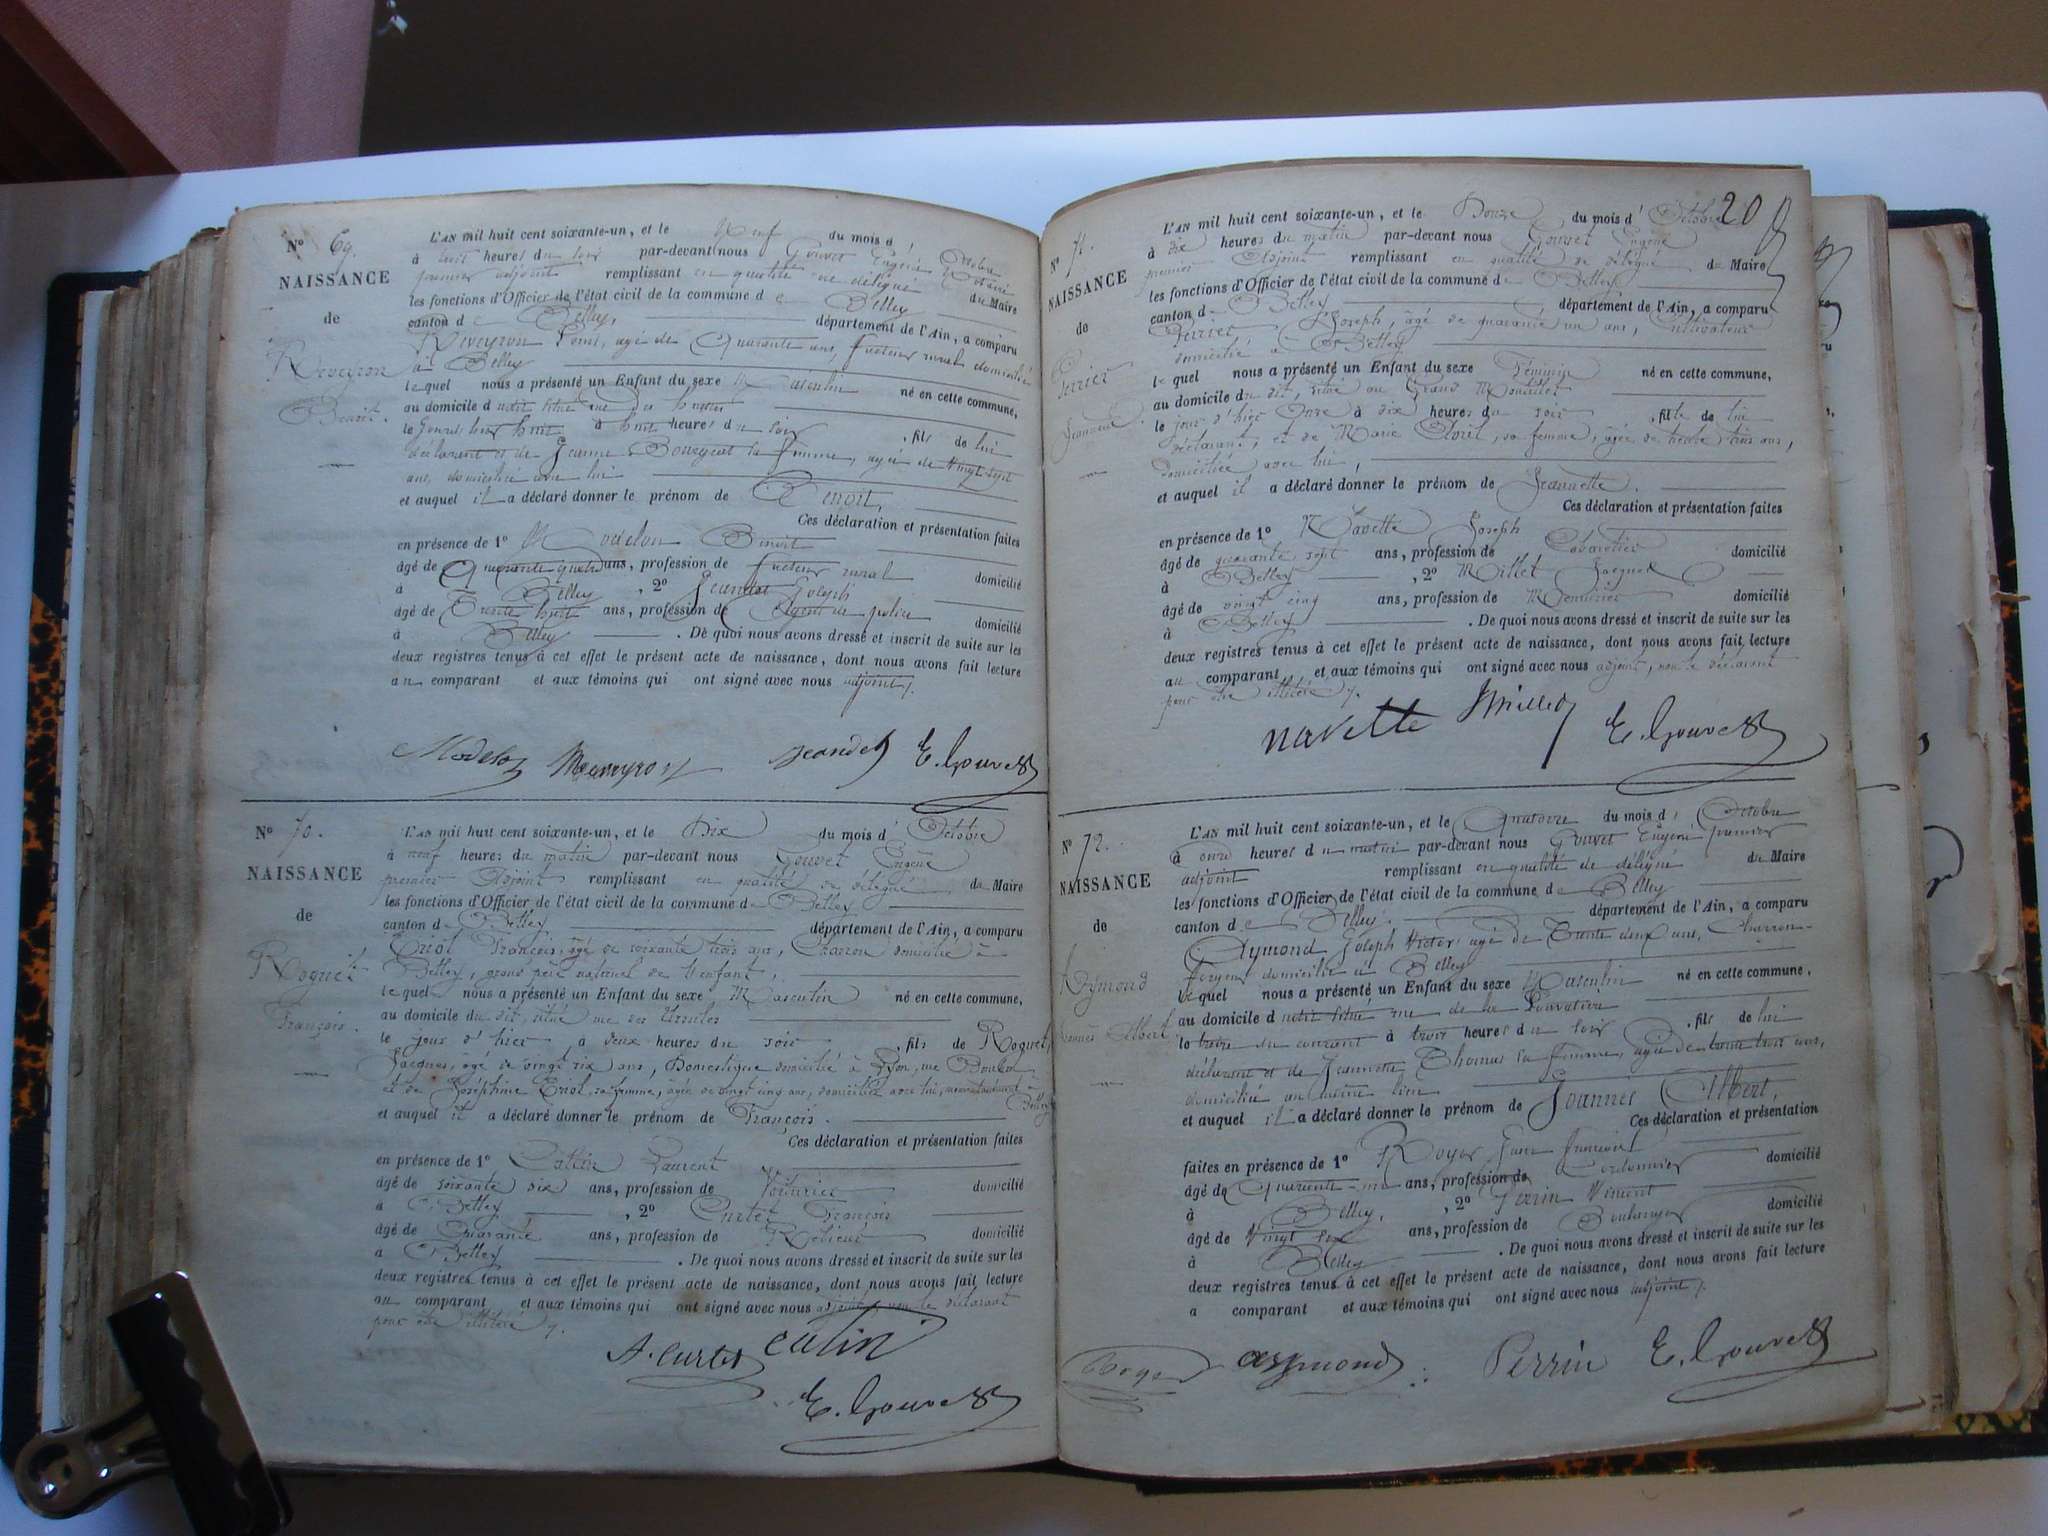 N° 69.
NAISSANCE
de
Reveyron
Benoit.
L'AN mil huit cent soixante-un, et le Neuf du mois d' Octobre
à huit heures du soir par-devant nous Gouvet Eugène Notaire
premier adjoint remplissant en qualité de délégué du Maire
les fonctions d'Officier de l'état civil de la commune de Belley
canton de Belley, département de l'Ain, a comparu
Reveyron âgé de Quarante ans, facteur rural domicilié
à Belley
lequel nous a présenté un Enfant du sexe Masculin né en cette commune,
au domicile d rue des
le huit à huit heures du soir, fils de lui
déclarant et de Jeanne sa femme, âgée de Vingt sept
ans, domiciliée avec lui
et auquel il a déclaré donner le prénom de Benoit,
Ces déclaration et présentation faites
en présence de 1° Modelon Benoit
âgé de Quarante quatre ans, profession de facteur rural domicilié
à Belley, 2° Jeandet Joseph
âgé de Trente huit ans, profession de Agent de police domicilié
à Belley. De quoi nous avons dressé et inscrit de suite sur les
deux registres tenus à cet effet le présent acte de naissance, dont nous avons fait lecture
au comparant et aux témoins qui ont signé avec nous adjoint.
Reveyron Jeandet E. Gouvet
N° 70.
NAISSANCE
de
Roguet
François.
L'AN mil huit cent soixante-un, et le Dix du mois d' Octobre
à neuf heures du matin par-devant nous Gouvet Eugène
premier Adjoint remplissant en qualité de délégué du Maire
les fonctions d'Officier de l'état civil de la commune de Belley
canton de Belley département de l'Ain, a comparu
Eriol François, âgé de soixante trois ans, Charron domicilié à
Belley, grand père maternel de l'enfant,
lequel nous a présenté un Enfant du sexe Masculin né en cette commune,
au domicile du dit, situé rue des Ursules
le jour d'hier à deux heures du soir, fils de Roguet,
Jacques, âgé de vingt six ans, Domestique domicilié à Lyon, rue Bourbon
et de Joséphine Eriol, sa femme, âgée de vingt cinq ans, domiciliée avec lui, maintenant à
Belley
et auquel il a déclaré donner le prénom de François.
Ces déclaration et présentation faites
en présence de 1° Catin Laurent
âgé de soixante dix ans, profession de Voiturier domicilié
à Belley, 2° Curtet François
âgé de Quarante ans, profession de Relieur domicilié
à Belley. De quoi nous avons dressé et inscrit de suite sur les
deux registres tenus à cet effet le présent acte de naissance, dont nous avons fait lecture
au comparant et aux témoins qui ont signé avec nous adjoint, non le déclarant
pour être illitéré.
Curtet Catin
E. Gouvet
20
N° 71.
NAISSANCE
de
Perrier
Jeannette
L'AN mil huit cent soixante-un, et le Douze du mois d' Octobre
à dix heures du matin par-devant nous Gouvet Eugène
premier Adjoint remplissant en qualité de délégué du Maire
les fonctions d'Officier de l'état civil de la commune de Belley
canton de Belley, département de l'Ain, a comparu
Perrier Joseph, âgé de quarante un ans, Cultivateur
domicilié à Belley
lequel nous a présenté un Enfant du sexe Féminin né en cette commune,
au domicile du dit, situé au Grand
le jour d'hier Onze à dix heures du soir, fille de lui
déclarant, et de Marie sa femme, âgée de trente trois ans,
domiciliée avec lui,
et auquel il a déclaré donner le prénom de Jeannette.
Ces déclaration et présentation faites
en présence de 1° Navette Joseph
âgé de quarante sept ans, profession de Cabaretier domicilié
à Belley, 2° Millet Jacques
âgé de vingt cinq ans, profession de Menuisier domicilié
à Belley. De quoi nous avons dressé et inscrit de suite sur les
deux registres tenus à cet effet le présent acte de naissance, dont nous avons fait lecture
au comparant et aux témoins qui ont signé avec nous adjoint, non le déclarant
pour être illitéré.
navette Millet E. Gouvet
N° 72.
NAISSANCE
de
Aymond
Joannès Albert
L'AN mil huit cent soixante-un, et le Quatorze du mois d' Octobre
à onze heures du matin par-devant nous Gouvet Eugène premier
adjoint remplissant en qualité de délégué du Maire
les fonctions d'Officier de l'état civil de la commune de Belley
canton de Belley département de l'Ain, a comparu
Aymond Joseph Victor âgé de Trente deux ans, Charron-
forgeur domicilié à Belley
lequel nous a présenté un Enfant du sexe Masculin né en cette commune,
au domicile d rue de la
le treize du courant à trois heures du soir, fils de lui
déclarant et de Jeannette Thomas sa femme, âgée de trente trois ans,
domiciliée au même lieu
et auquel il a déclaré donner le prénom de Joannès Albert,
Ces déclaration et présentation
faites en présence de 1° Royer Jean François
âgé de Quarante-un ans, profession de Cordonnier domicilié
à Belley, 2° Perrin Vincent
âgé de Vingt six ans, profession de Boulanger domicilié
à Belley. De quoi nous avons dressé et inscrit de suite sur les
deux registres tenus à cet effet le présent acte de naissance, dont nous avons fait lecture
a comparant et aux témoins qui ont signé avec nous adjoint.
Royer aymond Perrin E. Gouvet